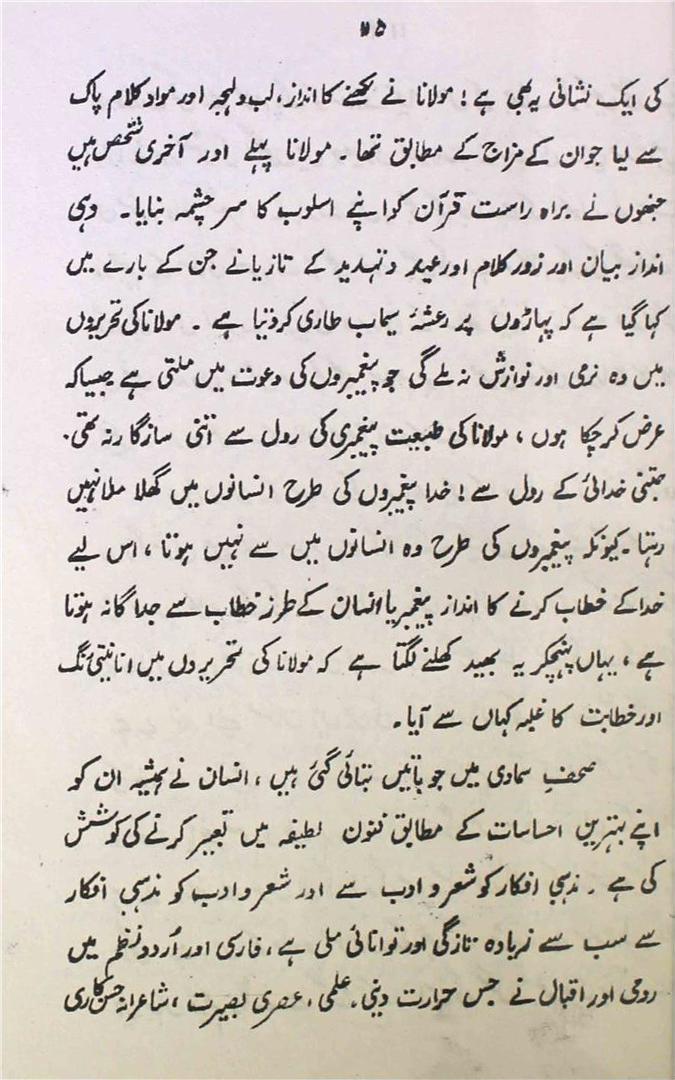 ۷۵
کی ایک نشانی یہ بھی ہے! مولانا نے لکھنے کا انداز، لب و لہجہ اور مواد کلام پاک
سے لیا جو ان کے مزاج کے مطابق تھا۔ مولانا پہلے اور آخری شخص ہیں
جنھوں نے براہ راست قرآن کو اپنے اسلوب کا سرچشمہ بنایا۔ وہی
انداز بیان اور زور کلام اور عید و تہدید کے تازیانے جن کے بارے میں
کہا گیا ہے کہ پہاڑوں پر رعشۂ سیماب طاری کر دنیا ہے۔ مولانا کی تحریروں
میں وہ نرمی اور نوازش نہ ملے گی جو پیغمبروں کی دعوت میں ملتی ہے جیسا کہ
عرض کر چکا ہوں، مولانا کی طبیعت پیغمبری کی رول سے اتنی سازگار نہ تھی۔
جتنی خدائی کے رول سے! خدا پیغمبروں کی طرح انسانوں میں گھلا ملا نہیں
رہتا۔ کیونکہ پیغمبروں کی طرح وہ انسانوں میں سے نہیں ہوتا، اس لیے
خدا کے خطاب کرنے کا انداز پیغمبر یا انسان کے طرز خطاب سے جداگانہ ہوتا
ہے، یہاں پہنچکر یہ بھید کھلنے لگتا ہے کہ مولانا کی تحریروں میں انانیتی رنگ
اور خطابت کا غلبہ کہاں سے آیا۔
صحفِ سماوی میں جو باتیں بتائی گئی ہیں، انسان نے ہمیشہ ان کو
اپنے بہترین احساسات کے مطابق فنون لطیفہ میں تعبیر کرنے کی کوشش
کی ہے۔ مذہبی افکار کو شعر و ادب سے اور شعر و ادب کو مذہبی افکار
سے سب سے زیادہ تازگی اور توانائی ملی ہے، فارسی اور اُردو نظم میں
رومی اور اقبال نے جس حرارت دینی۔ علمی، عصری بصیرت، شاعرانہ حسن کاری